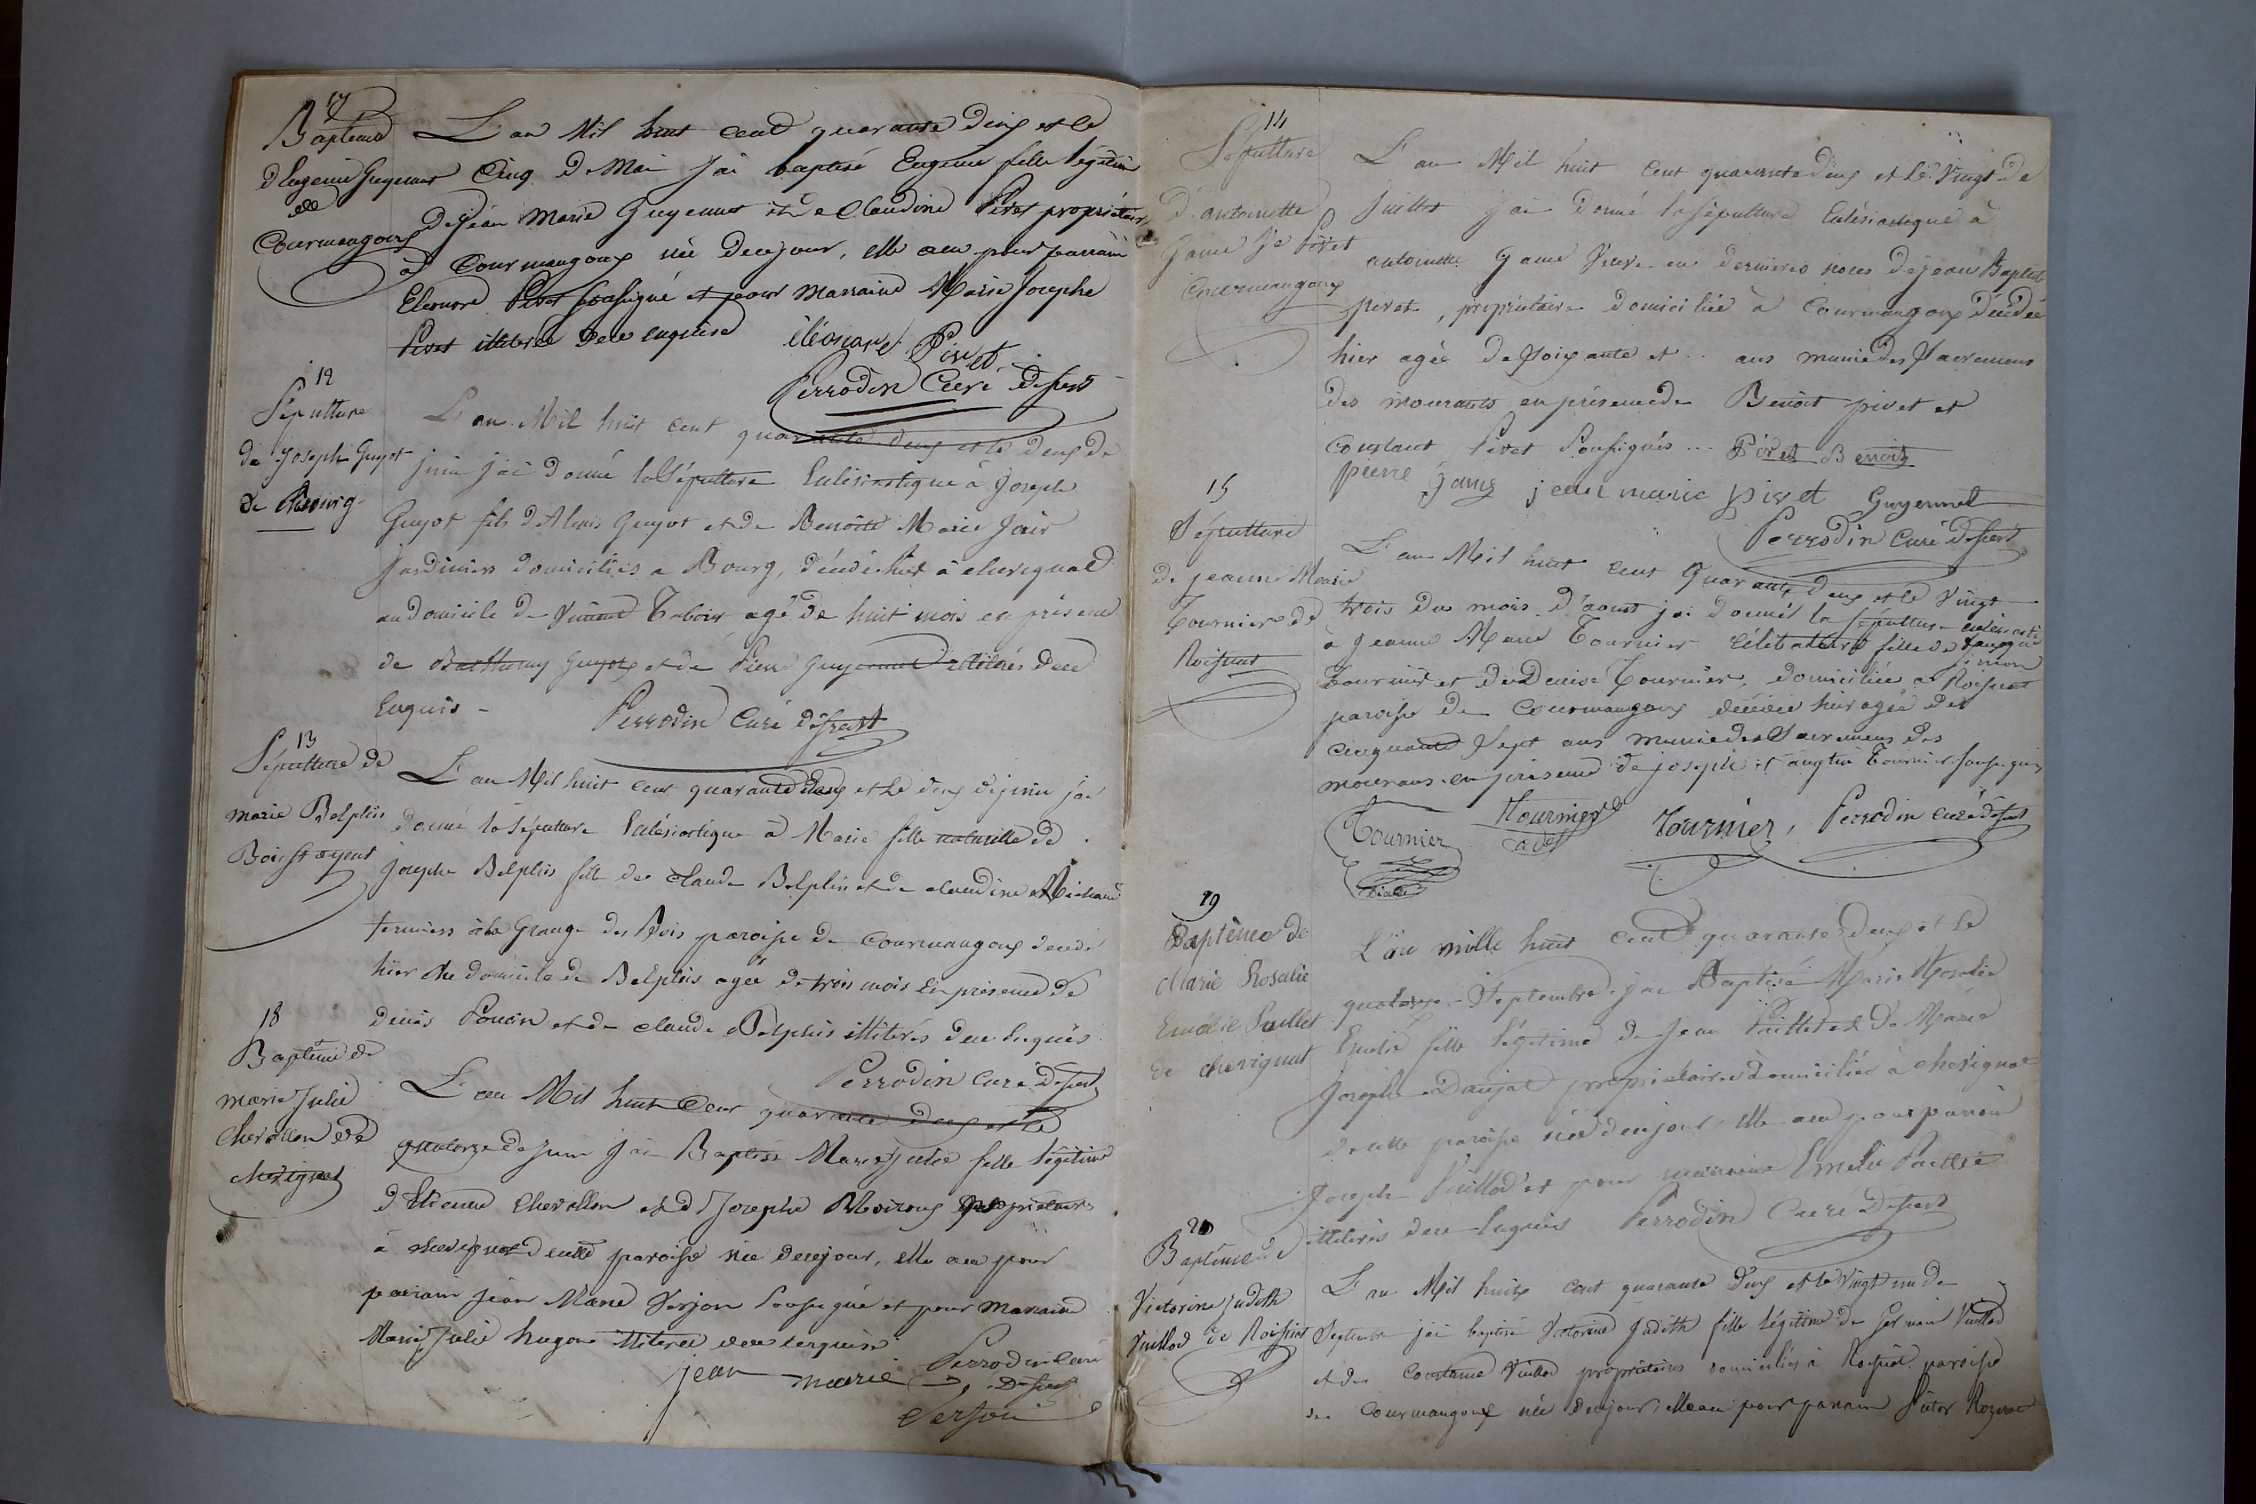 17
Baptême
d'Eugenie Guyennet
de
Courmangoux
L'an Mil huit cent quarante deux et le
Cinq De Mai J'ai baptisé Eugenie fille légitime
De Jean Marie Guyennet et de Claudine Pivet propriétaires
à Courmangoux née De ce jour, elle a eu pour parrain
Eléonore Pivet soussigné et pour Marraine Marie Josephe
Pivet illiterée De ce enquise
éléonard Pivet
Perrodin Curé desserv
12
Sépulture
de Joseph Guyot
de Bourg
L'an Mil huit cent quarante deux et le deux de
juin j'ai donné la Sépulture Eclésiastique à Joseph
Guyot fils d'Alexis Guyot et de Benoite Marie
Jardiniers domiciliés a Bourg, décédé hier à chevignat
au domicile de Vincent agé de huit mois en présence
de Barthelemy Guyot et de Pierre Guyennet illiterés de ce
Enquis -
Perrodin Curé desservt
13
Sépulture de
marie Belplin
L'an Mil huit cent quarante deux et le deux de juin j'ai
donné la Sépulture Eclésiastique à Marie fille naturelle de
josephe Belplin fille de claude Belplin et de claudine Michaud
fermiers à la Grange des Bois paroisse de Courmangoux décédé
hier au domicile de Belplin agée de trois mois En présence de
denis et de claude Belplin illiterés de ce Enquis
Perrodin Curé Dessert
18
Baptême de
marie Julie
Chevallon de
chevignat
L'an Mil huit Cent quarante deux et le
quatorze de Juin J'ai Baptisé Marie Julie fille légitime
d'Etienne Chevallon et de Josephe Moiroux propriétaires
à chevignat de cette paroisse née de ce jour, elle a eu pour
parrain jean Marie Verjon soussigné et pour Marraine
Marie Julie hugon illiterée de ce enquise
jean marie Perrodin Curé
Dessert
Verjon
14
Sépulture
D'antoinette
Game Ve Pivet
Courmangoux
L'an Mil huit Cent quarante deux et le Vingt De
Juillet j'ai Donné la Sépulture Eclésiastique à
antoinette Game Veuve en dernières noces De jean Baptiste
pivet, propriétaire Domiciliée à Courmangoux Décédée
hier agée De soixante et .. ans munie des sacremens
Des mourants en présence de Benoit pivet et
Constant Pivet Soussignés ... Pivet Benoit
pierre game jean marie pivet Guyennet
Perrodin Curé Dessert
15
Sépulture
De jeanne Marie
Tournier de
Roissiat
L'an Mil huit cent Quarante Deux et le Vingt
trois du mois d'aout j'ai donné la Sépulture eclésiasti
à Jeanne Marie Tournier Célibataire fille de
Simon
Tournier et de Denise Tournier, domiciliée a Roissiat
paroisse De Courmangoux décédée hier agée de
cinquante Sept ans munie des Sacremens des
mourans en présence de joseph et augtin Tournier soussignés
Tournier Tournier
cadet
Tournier, Perrodin curé dessert
19
Baptême de
Marie Rosalie
Emélie Paillet
de chevignat
L'an mille huit Cent quarante Deux et le
quatorze Septembre j'ai Baptisé Marie Rosalie
Emélie fille légitime de Jean et De Marie
Josephe Daujat propriétaires domiciliés à chevignat
De cette paroisse née de ce jour, elle a eu pour parrain
Joseph et pour marraine Emélie
illiterés de ce Enquis Perrodin Curé Dessert
20
Baptême de
Victorine Judith
Vuillod de Roissiat
L'an Mil huit cent quarante deux et le Vingt un de
Septembre j'ai baptisé Victorine Judith fille légitime de Germain Vuillod
et de Constance Vuillod propriétaires domiciliés à Roissiat paroisse
de Courmangoux née de ce jour, elle a eu pour parrain Victor